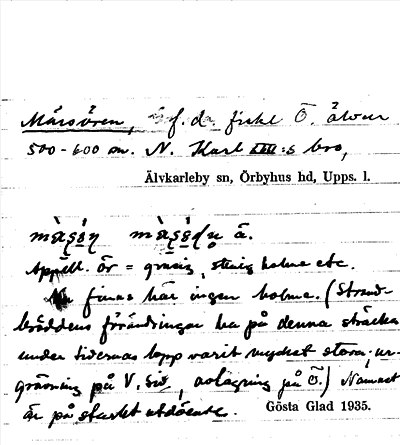 Mårsören, f. d. fiske Ö. älven
500-600 m. N. Karl XIII:s bro,
Älvkarleby sn, Örbyhus hd, Upps. l.
Appell. ör = grusig, stenig holme etc.
finnes här ingen holme. (Strand-
bräddens förändringar ha på denna sträcka
under tidernas lopp varit mycket stora; ur-
grävning på V. sid., avlagring på Ö.) Namnet
är på starkt utdöende.
Gösta Glad 1935.